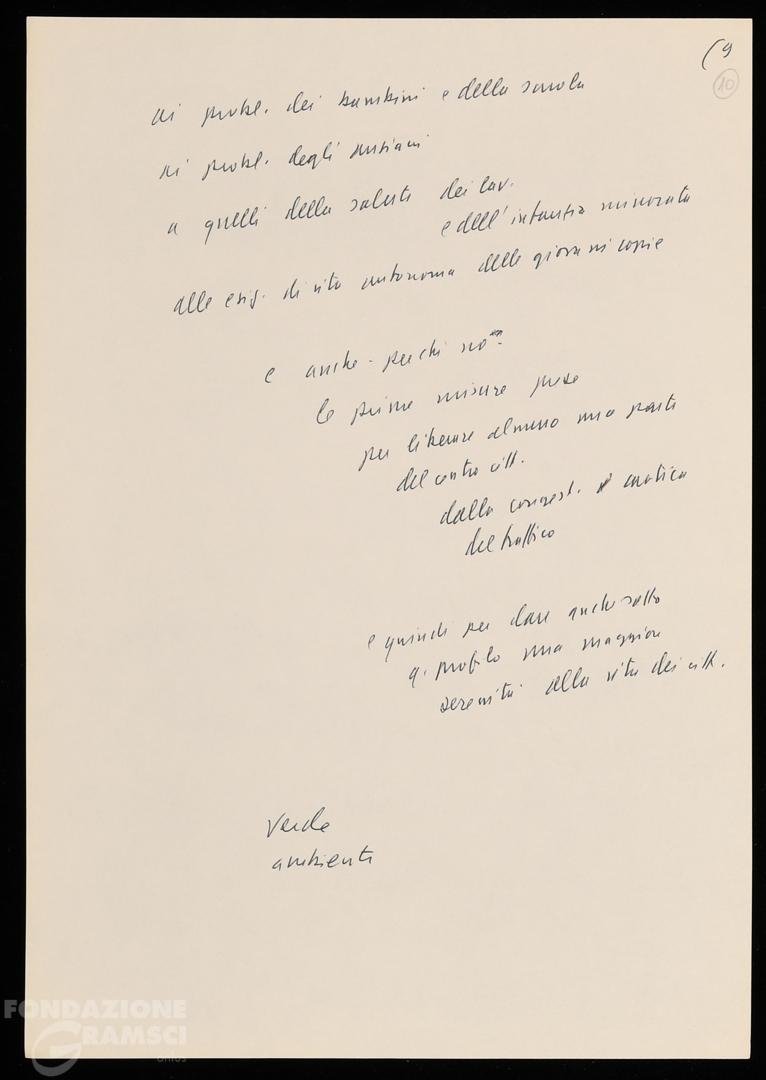 (9
10
ai probl. dei bambini e della scuola
ai probl. degli anziani
a quelli della salute dei lav.
e dell'infanzia minorata
alle esig. di vita autonoma delle giovani copie
e anche - perchi no -
le prime misure prese
per liberare almeno una parte
del centro citt.
dalla congest. caotica
del traffico
e quindi per dare anche sotto
q. profilo una maggiore
serenità alla vita dei citt.
Verde
ambiente
FONDAZIONE
GRAMSCI
onlus